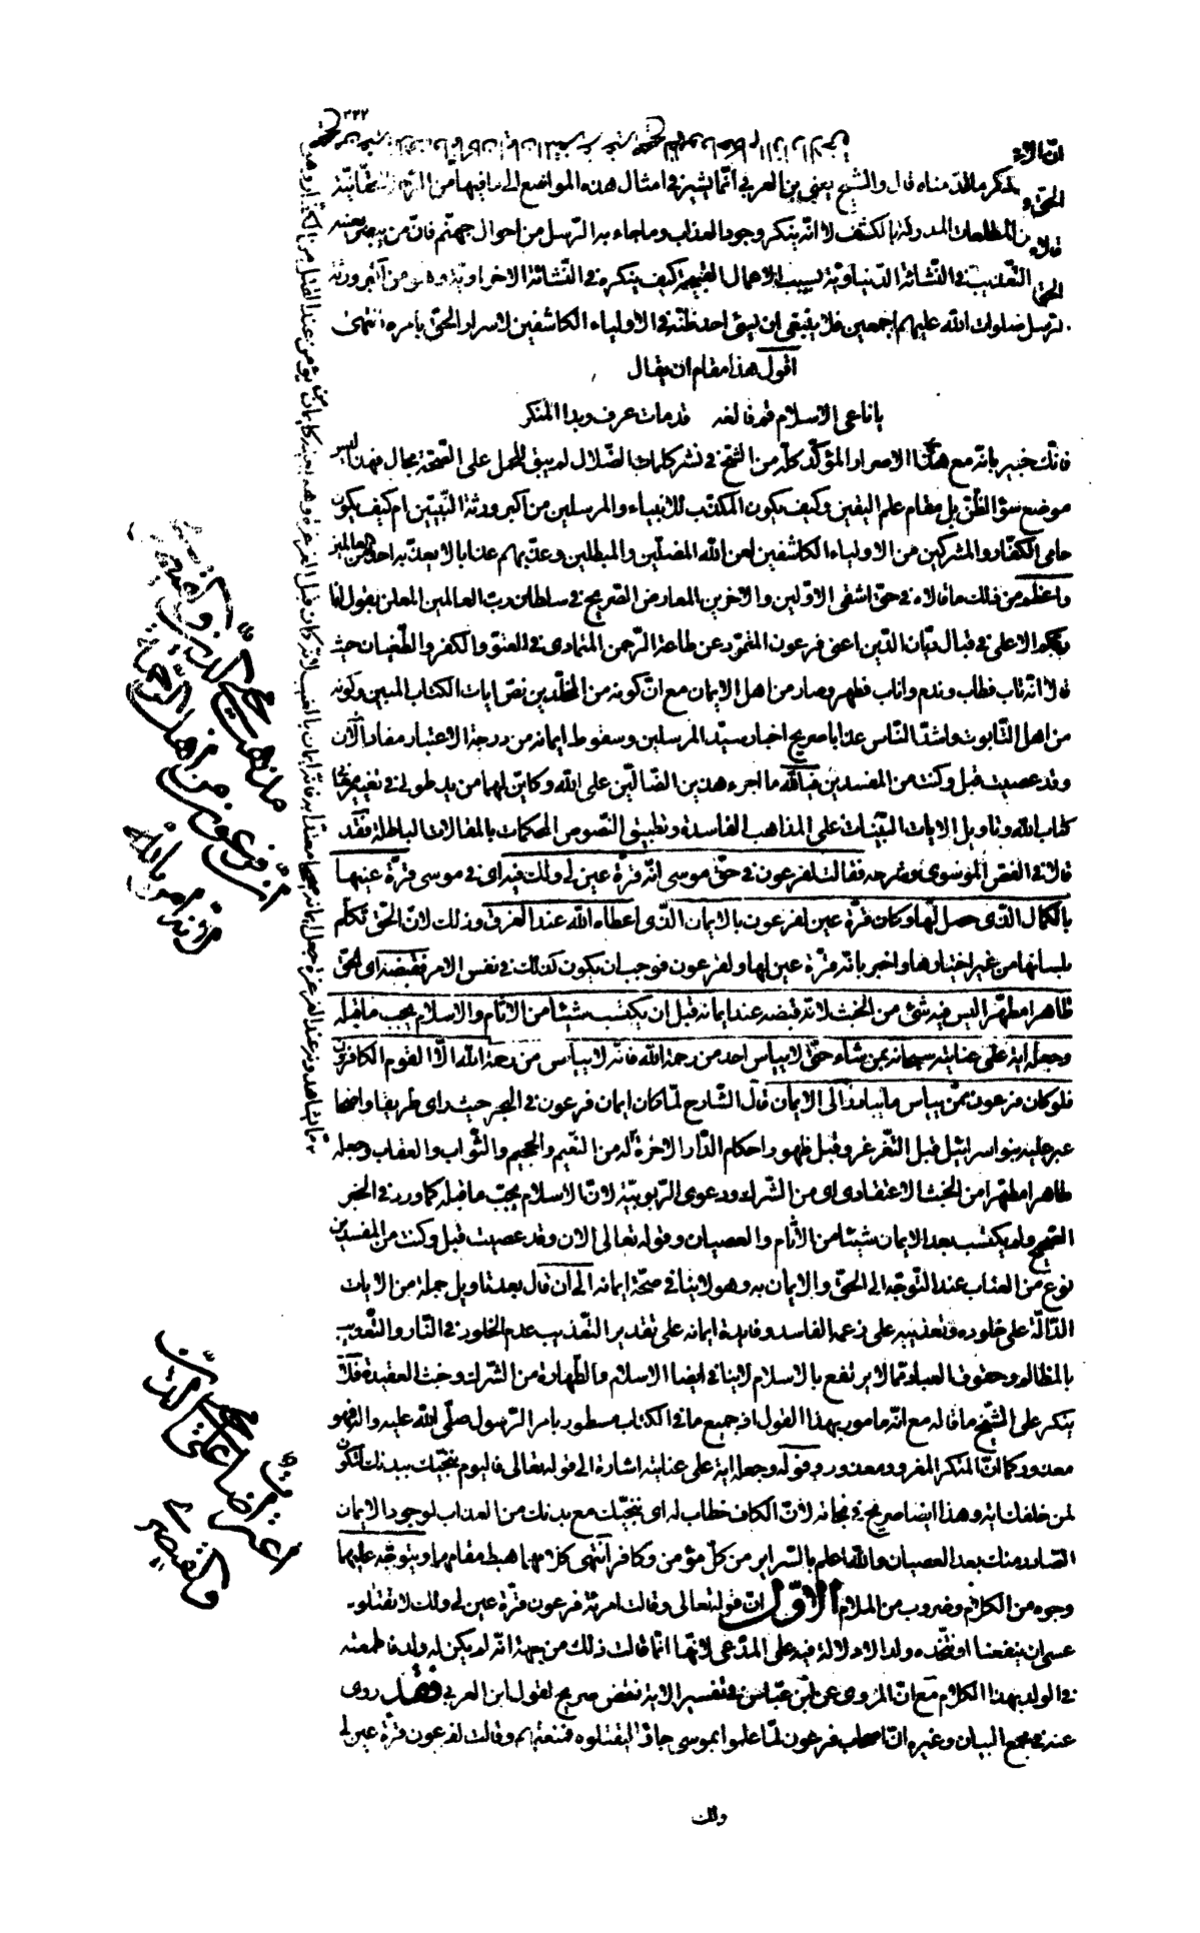 ٢٢٢
يذكر ما قدّمناه قال والشيخ يعني بن العربي انّما يشير في امثال هذه المواضع الى ما فيها من الرّحمة الحقّانيّة
من المطلعات المدركة بالكشف لا انّه ينكر وجود العذاب وما جاء به الرّسل من احوال جهنّم فانّ من يبصر بعينه
التّعذيب في النّشأة الدّنياويّة بسبب الاعمال القبيحة كيف ينكره في النّشأة الاخراويّة وهو من اكبر ورثة
الرسل صلوات الله عليهم اجمعين فلا ينبغي ان يسيئ احد ظنّه في الاولياء الكاشفين لاسرار الحقّ بأمره انتهى
اقول هذا مقام ان يقال
يا ناعي الاسلام قم فانعه قد مات عرف وبدا المنكر
فانّك خبير بانّه مع هذا الاصرار المؤكّد كلّه من الشيخ في نشر كلمات الضّلال لم يبق للحمل على الصّحّة مجال فهذا ليس
موضع سوء الظّنّ بل مقام علم اليقين وكيف يكون المكذّب للانبياء والمرسلين من اكبر ورثة النّبيّين ام كيف يكون
حامي الكفّار والمشركين من الاولياء الكاشفين لعن الله المضلّين والمبطلين وعذّبهم عذابا لا يعذّبه احدا من العالمين
واعظم من ذلك ما قالاه في حقّ اشقى الاوّلين والاخرين المعارض الصّريح في سلطان ربّ العالمين المعلن بقول انا
ربّكم الاعلى في قبال ديّان الدّين اعني فرعون المتمرّد عن طاعة الرّحمن المتمادي في العتوّ والكفر والطّغيان حيث
قالا انّه تاب فطاب وندم واناب فطهر وصار من اهل الايمان مع انّ كونه من المخلّدين نصّ ايات الكتاب المبين وكونه
من اهل التّابوت واشدّ النّاس عذابا صريح اخبار سيّد المرسلين وسقوط ايمانه من درجة الاعتبار مفاد آلآن
وقد عصيت قبل وكنت من المفسدين فيالله ما اجرء هذين الضّالّين على الله وكاين لهما من يد طولى في تغيير
كتاب الله وتاويل الايات البيّنات على المذاهب الفاسدة وتطبيق النّصوص المحكمات بالمقالات الباطلة فقد
قالا في الفصّ الموسوي وشرحه فقالت لفرعون في حقّ موسى انّه قرّة عين لي ولك فبه اي في موسى قرّة عينها
بالكمال الّذي حصل لها وكان قرّة عين لفرعون بالايمان الّذي اعطاه الله عند الغرق وذلك لانّ الحقّ تكلّم
بلسانها من غير اختيارها واخبر بانّه قرّة عين لها ولفرعون فوجب ان يكون كذلك في نفس الامر فقبضه اي الحقّ
طاهرا مطهّرا ليس فيه شئ من الخبث لانّه قبضه عند ايمانه قبل ان يكتسب شيئا من الاثام والاسلام يجبّ ما قبله
وجعله اية على عنايته سبحانه بمن شاء حتّى لا ييأس احد من رحمة الله فانّه لا ييأس من رحمة الله الّا القوم الكافرون
فلو كان فرعون ممّن ييأس ما بادر الى الايمان قال الشّارح لمّا كان ايمان فرعون في البحر حيث راى طريقا واضحا
عبر عليه بنو اسرائيل قبل التّغرغر وقبل ظهور احكام الدّار الاخرة له من النّعيم والجحيم والثّواب والعقاب وجعله
طاهرا مطهّرا من الخبث الاعتقادي اي من الشّرك ودعوى الرّبوبيّة لانّ الاسلام يجبّ ما قبله كما ورد في الخبر
الصّحيح ولم يكتسب بعد الايمان شيئا من الآثام والعصيان وقوله تعالى الان وقد عصيت قبل وكنت من المفسدين
نوع من العتاب عند التّوجّه الى الحقّ والايمان به وهو لا ينافي صحّة ايمانه الى ان قال بعد تاويل جملة من الايات
الدّالّة على خلوده وتعذيبه على زعمه الفاسد وفايدة ايمانه على تقدير التّعذيب عدم الخلود في النّار والتّعذيب
بالمظالم وحقوق العباد ممّا لا يرتفع بالاسلام لا ينافي ايضا الاسلام والطّهارة من الشّرك وخبث العقيدة فلا
ينكر على الشّيخ ما قاله مع انّه مامور بهذا القول اذ جميع ما في الكتاب مسطور بامر الرّسول صلّى الله عليه واله فهو
معذور كما انّ المنكر المغرور معذور وقوله وجعله اية على عنايته اشارة الى قوله تعالى فاليوم ننجّيك ببدنك لتكون
لمن خلفك اية وهذا ايضا صريح في نجاته لانّ الكاف خطاب له اي ننجّيك مع بدنك من العذاب لوجود الايمان
الصّادر منك بعد العصيان والله اعلم بالسّراير من كلّ مؤمن وكافر انتهى كلامهما هبط مقامهما ويتوجّه عليهما
وجوه من الكلام وضروب من الملام الاوّل انّ قوله تعالى وقالت امرئة فرعون قرّة عين لي ولك لا تقتلوه
عسى ان ينفعنا او نتّخذه ولدا لا دلالة فيه على المدّعى لانّها انّما قالت ذلك من جهة انّه لم يكن له ولد فاطمعته
في الولد بهذا الكلام مع انّ المروي عن ابن عبّاس في تفسير الاية نقض صريح لقول ابن العربي فقد روى
عنه في مجمع البيان وغيره انّ اصحاب فرعون لمّا علموا بموسى جاؤا ليقتلوه فمنعتهم وقالت لفرعون قرّة عين لي
ولك
مذهب محيي الدين
ان فرعون من اهل النجاة
وانه امر بالله
اعتراضا على محيي الدين
والقيصري